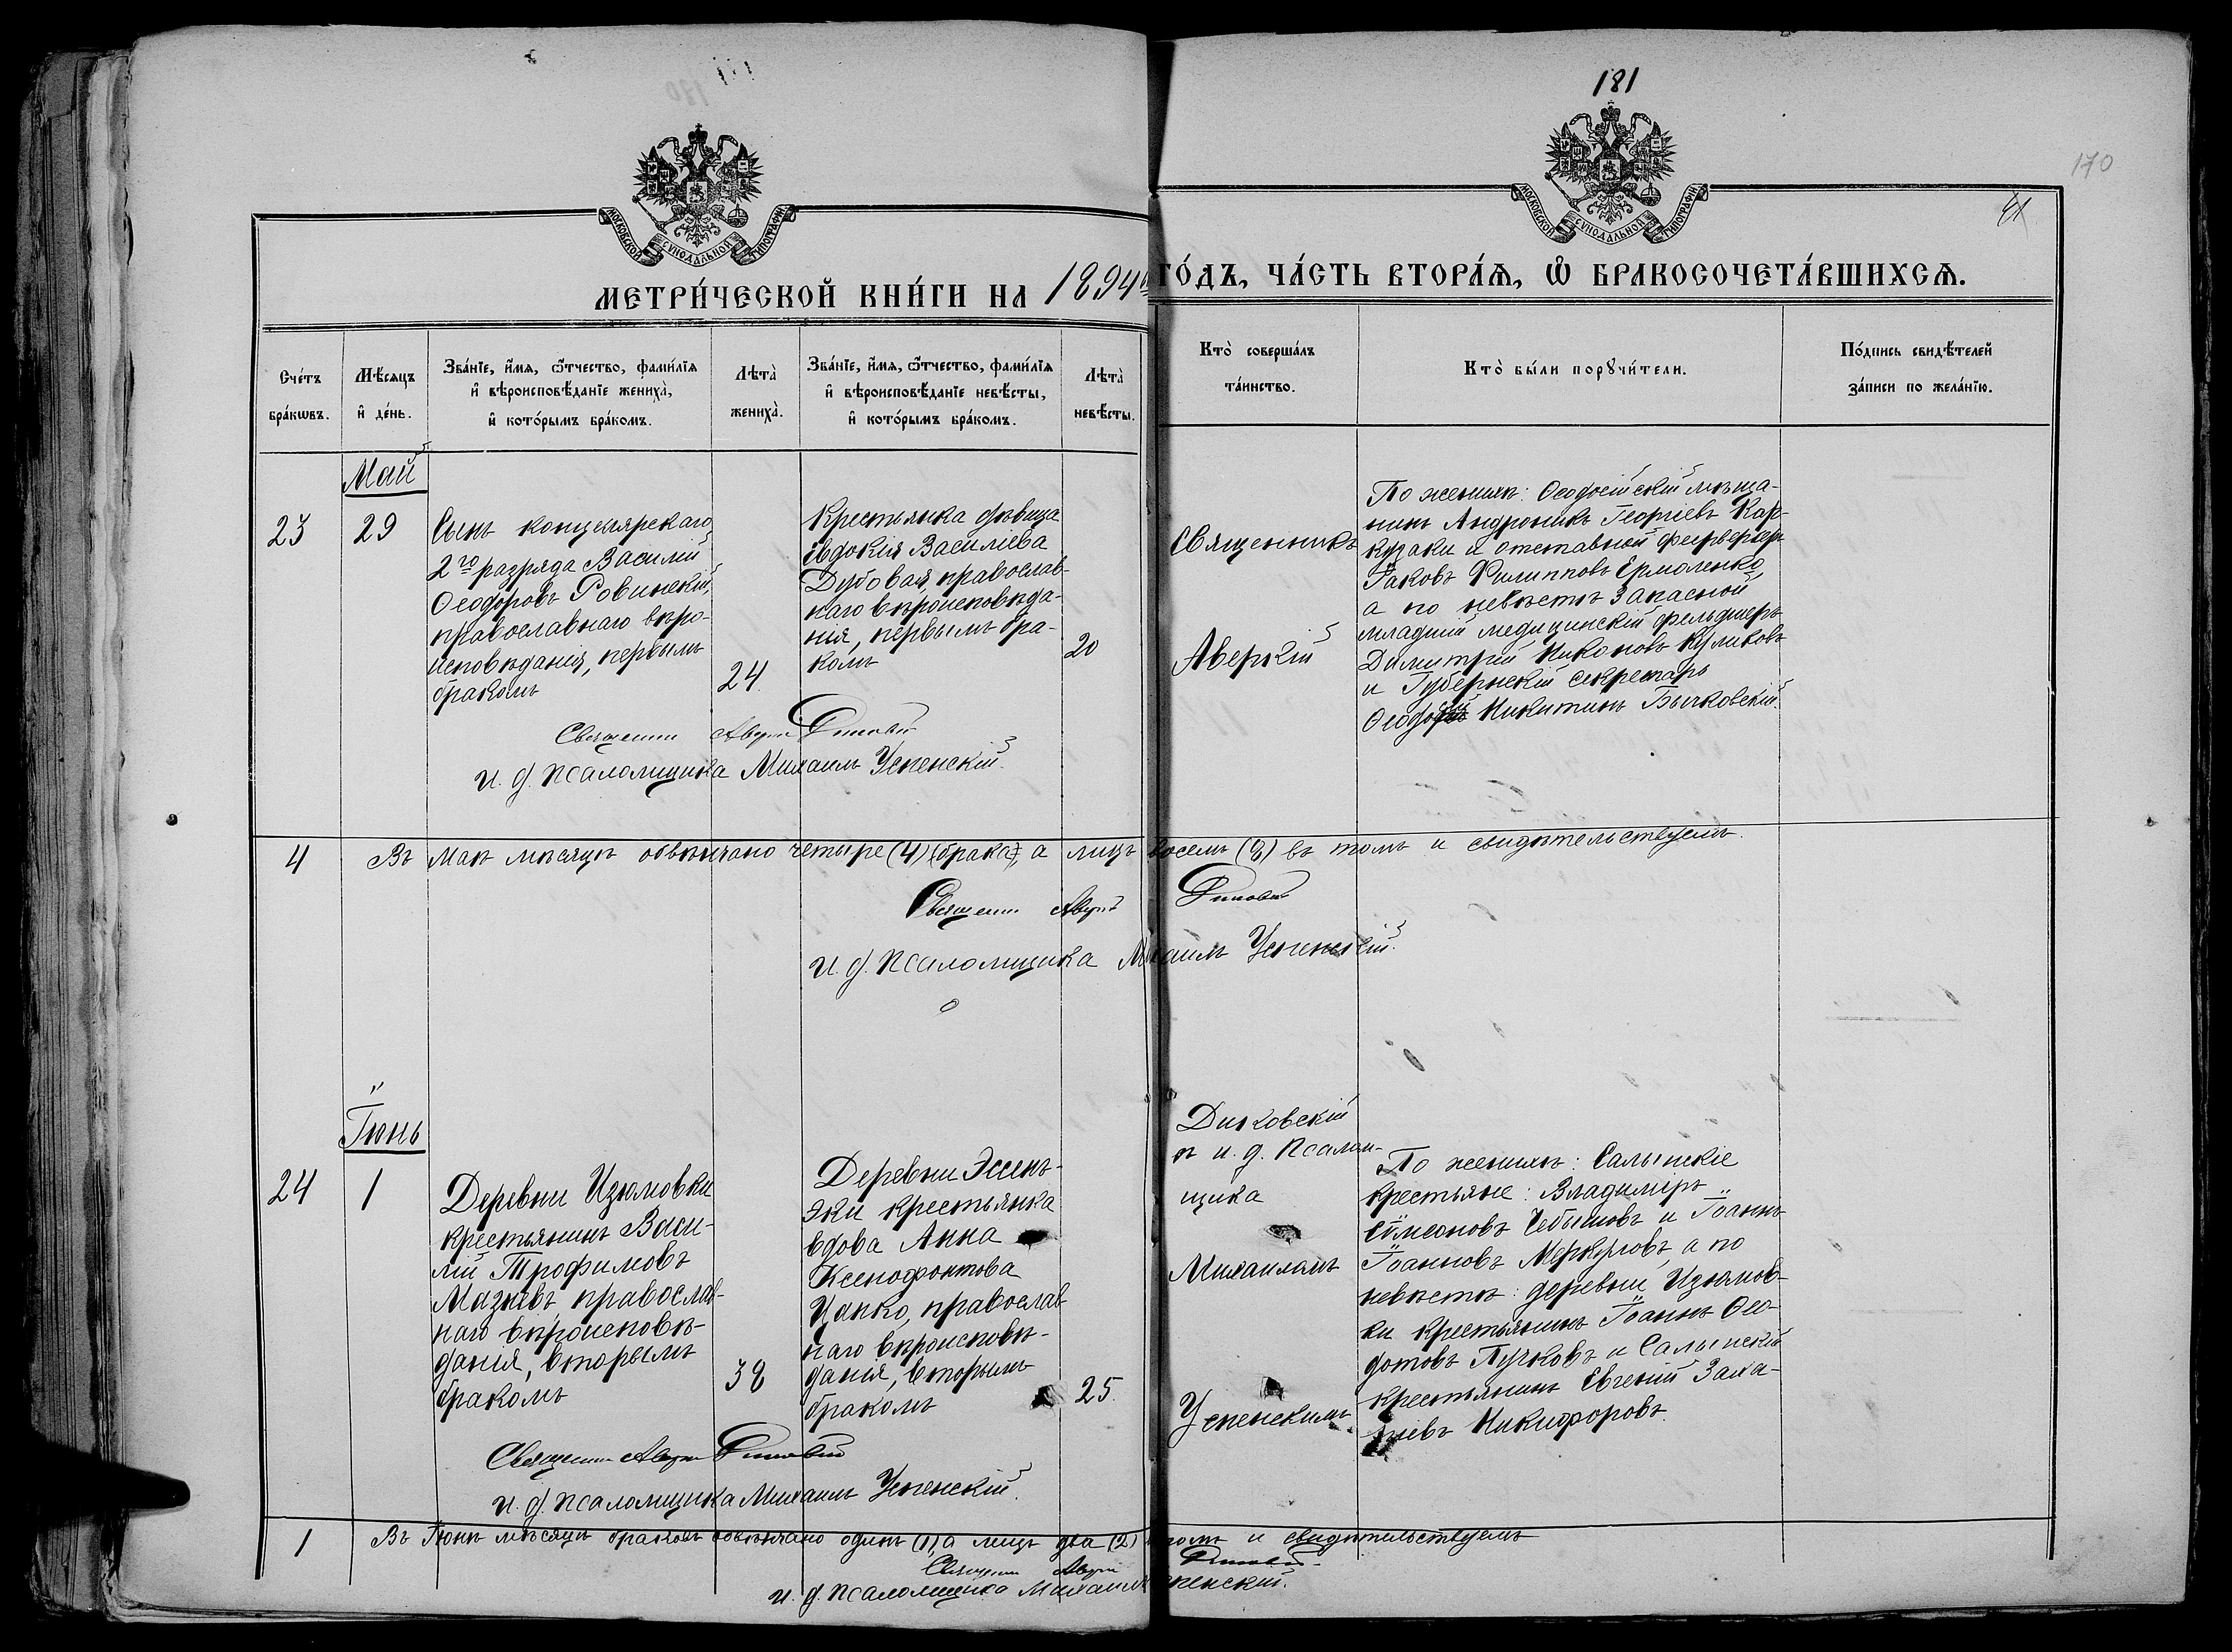 181
170
МОСКОВСКОЙ СѴНОДАЛЬНОЙ ТИПОГРАФІИ
МОСКОВСКОЙ СѴНОДАЛЬНОЙ ТИПОГРАФІИ
МЕТРИ́ЧЕСКОЙ КНИ́ГИ НА 1894й ГО́ДЪ, ЧА́СТЬ ВТОРА́Ѧ, Ѡ҆ БРАКОСОЧЕТА́ВШИХСѦ.
Сче́тъ
бра́кѡвъ.
Мѣ́сяцъ
и҆ де́нь.
Зва́нїе, и҆́мѧ, ѻ҆́тчество, фами́лїѧ
и҆ вѣроисповѣ́данїе жениха̀,
и҆ кото́рымъ бра́комъ.
Лѣта̀
жениха̀.
Зва́нїе, и҆́мѧ, ѻ҆́тчество, фами́лїѧ
и҆ вѣроисповѣ́данїе невѣ́сты,
и҆ кото́рымъ бра́комъ.
Лѣта̀
невѣ́сты.
Кто̀ соверша́лъ
та́инство.
Кто̀ бы́ли порꙋчи́тели.
По́дпись свидѣ́телей
за́писи по жела́нїю.
Май
23
29
Сынъ канцелярскаго
2го разряда Василій
Ѳеодоровъ Ровинскій,
православнаго вѣро-
исповѣданія, первымъ
бракомъ
24.
Крестьянка дѣвица
Евдокія Василіева
Дубовая, православ-
наго вѣроисповѣда-
нія, первымъ бра-
комъ
20
Священникъ
Аверкій
По женихѣ: Ѳеодосійскій мѣща-
нинъ Андроникъ Георгіевъ Кар-
кузаки и отставной фейерверкеръ
Іаковъ Филипповъ Ермоленко,
а по невѣстѣ запасной
младшій медицинскій фельдшеръ
Димитрій Никоновъ Куликовъ
и Губернскій секретарь
Ѳеодоръ Никитинъ Бычковскій.
Священникъ Аверкій
и. д. псаломщика Михаилъ Успенскій.
4
Въ Маѣ мѣсяцѣ обвѣнчано четыре (4) (брака), а лицъ восемь (8) въ томъ и свидѣтельствуемъ.
Священникъ Аверкій
и. д. псаломщика Михаилъ Успенскій.
Іюнь
24
1
Деревни Изюмовки
крестьянинъ Васи-
лій Трофимовъ
Мазневъ, православ-
наго вѣроисповѣ-
данія, вторымъ
бракомъ
38
Деревни Эссенъ-
Эки крестьянка
вдова Анна
Ксенофонтова
Цапко, православ-
наго вѣроисповѣ-
данія, вторымъ
бракомъ
25.
и. д. Псалом-
щика
Михаиломъ
Успенскимъ
По женихѣ: Салынскіе
крестьяне: Владиміръ
Сѵмеоновъ Чебышовъ и Іоаннъ
Іоанновъ Меркуловъ, а по
невѣстѣ: деревни Изюмов-
ки крестьянинъ Іоаннъ Ѳео-
дотовъ Пучковъ и Салынскій
крестьянинъ Евгеній Заха-
ріевъ Никифоровъ.
Священникъ Аверкій
и. д. псаломщика Михаилъ Успенскій.
1
Въ Іюнѣ мѣсяцѣ браковъ повѣнчано одинъ (1), а лицъ два (2) томъ и свидѣтельствуемъ
Священникъ Аверкій
и. д. псаломщика Михаилъ Успенскій.